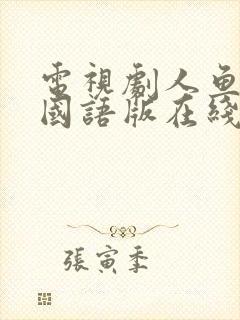 電視劇人魚
國語版在綫
張寅季